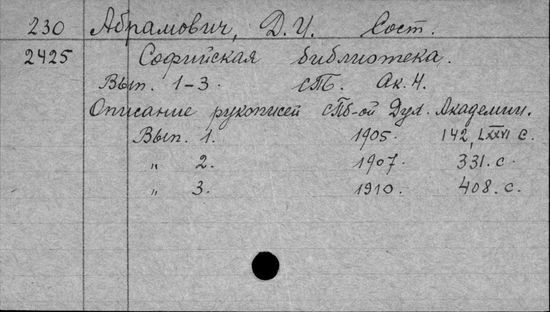 230 Абрамович, Д. И. Сост.
2425 Софийская библиотека.
Вып. 1-3. СПБ. Ак. Н.
Описание рукописей СПБ-ой Дух. Академии.
Вып. 1. 1905. 142, LXXVI с.
" 2. 1907. 331. с.
" 3. 1910. 408. с.